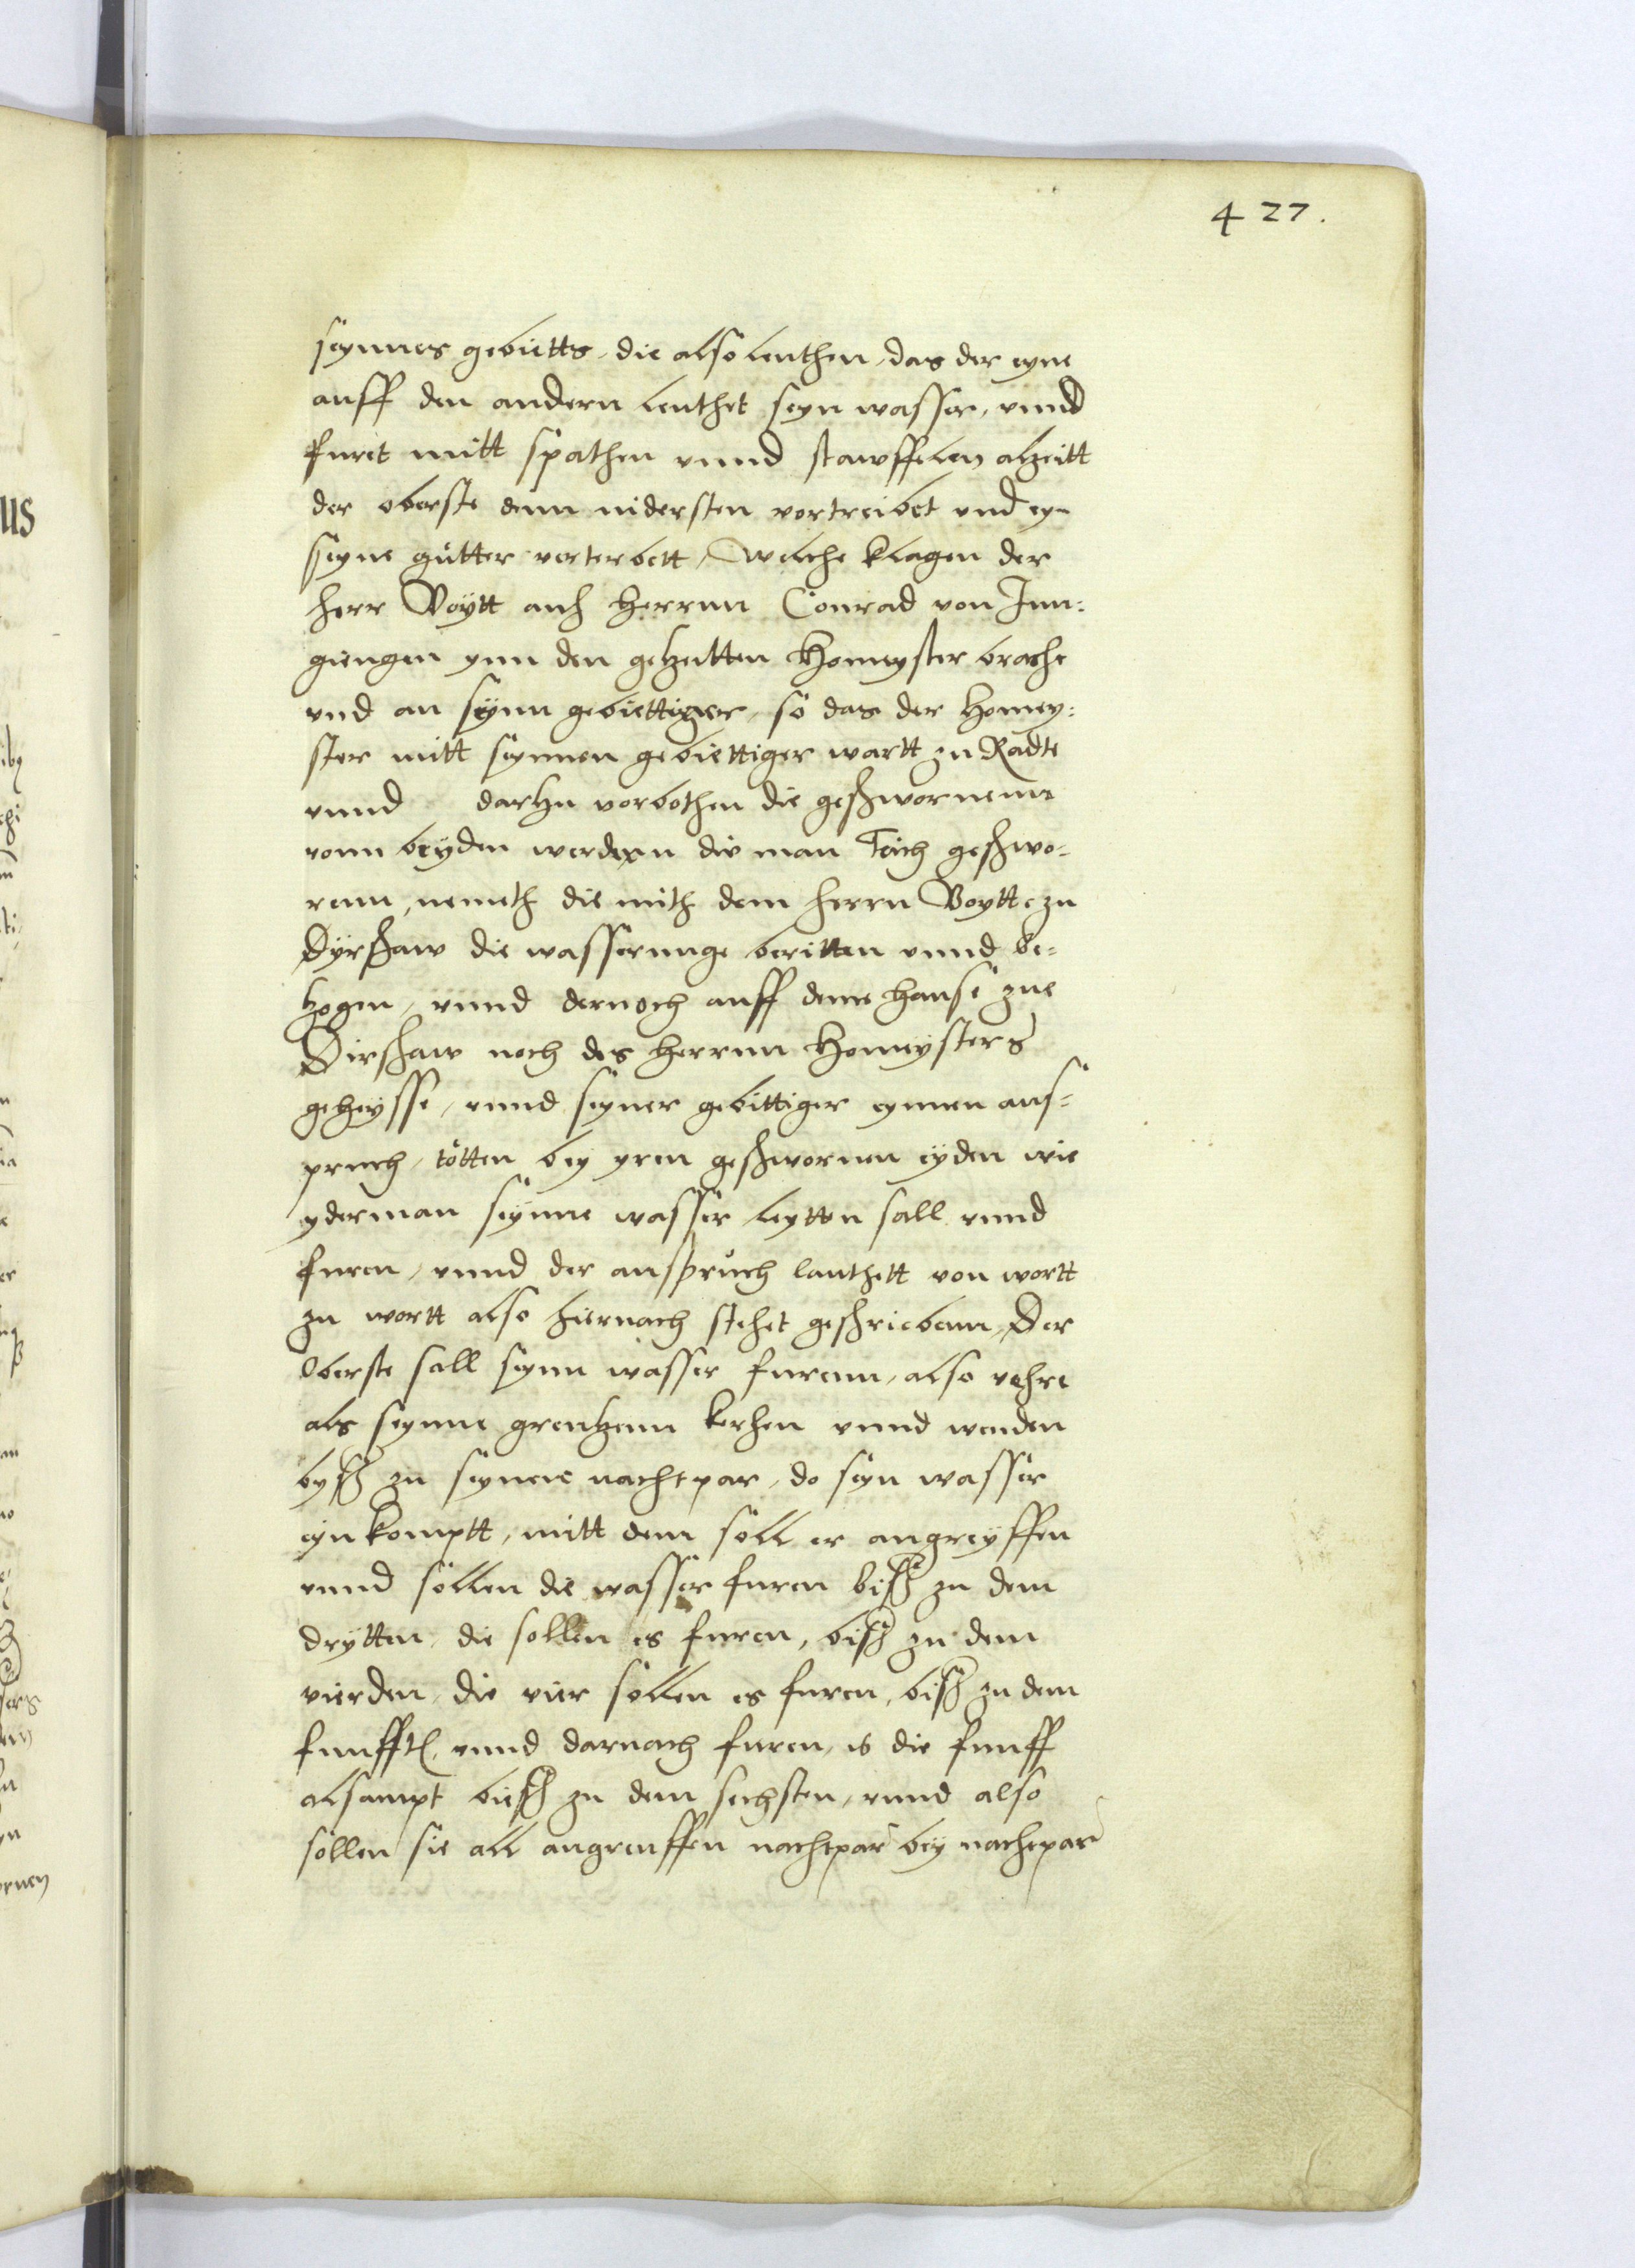 427.
seynnes gebietts, die also leuthen, das der eyne
auff den andern leuthet seyn wasser, vnnd
furet mitt spathen vnnd schawffelen alzeitt
der oberste denn nidersten vortreibet vnd ym
seyne gůtter verterbett, Welche klagen der
herr Voytt auch herrnn Conrad von Jun-
giengen ynn den gezeitten Homeyster brachte
vnd an seynn gebiettiger, so das der homey-
ster mitt seynnen gebiettiger wartt zu Radte
vnnd darzu vorbothen die geschwornenn
vonn beyden werdern die man Teich geschwo-
renn, nemeth die mith dem herrn Voytte zu
Dyrschaw die wasserunge beritten vnnd be-
zogen, vnnd dernoch auff deme hause zue
Dirschaw noch des herrnn Homeysters
geheysse, vnnd seyner gebittiger eynnen aus-
pruch, tötten bey yren geschwornen eyden wie
yderman seynne wasser leytten sall vnnd
furen, vnnd der ausprůch lauthett von wortt
zu wortt also hiernach stehet geschriebenn, Der
Oberste sall seynn wasser furenn, also vehre
als seynne grentzenn kerhen vnnd wenden
bysz zu seynere nachtpar, do seyn wasser
eyn komptt, mitt dem soll er angreyffen
vnnd sollen die wasser furen bisz zu dem
drytten, die sollen es furen, bisz zu dem
vierden, die vier sollen es furen, bisz zu dem
funfften vnnd darnach furen, is die funff
alsampt biesz zu dem sechsten, vnnd also
sollen sie all angreuffen nachtpar bey nachtpar